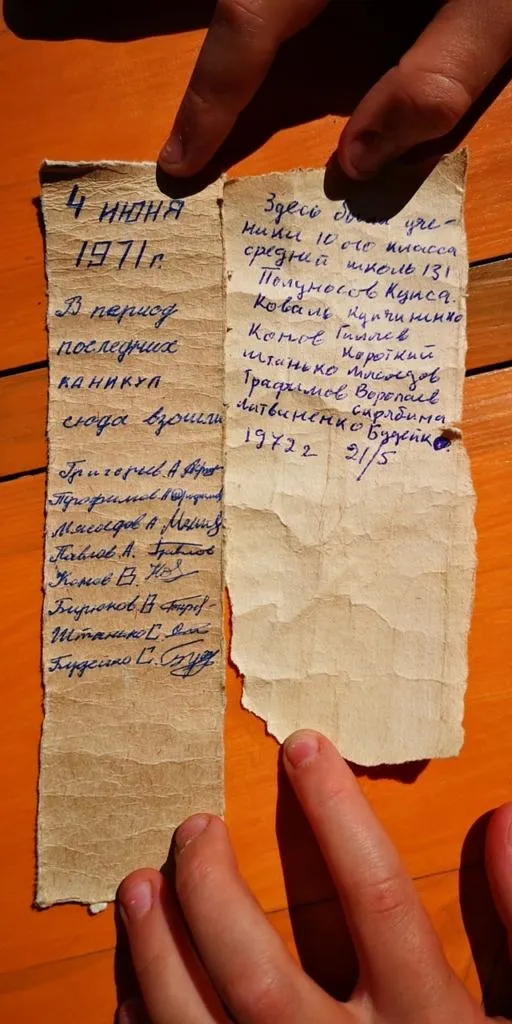 4 июня
1971 г.
В период
последних
каникул
сюда взошли
Григорьев А
Трофимов А
Мясоедов А
Павлов А.
Комов В.
Бирюков В
Штанько С.
Будейко С.
Здесь были уче-
ники 10ого класса
средний школь 131
Полуносов Кукса.
Коваль Купчиненко
Комов Гиллев
Короткий
Штанько Мясоедов
Трафимов Воропаев
Скрябина
Литвиненко Будейко
1972 г 21/5